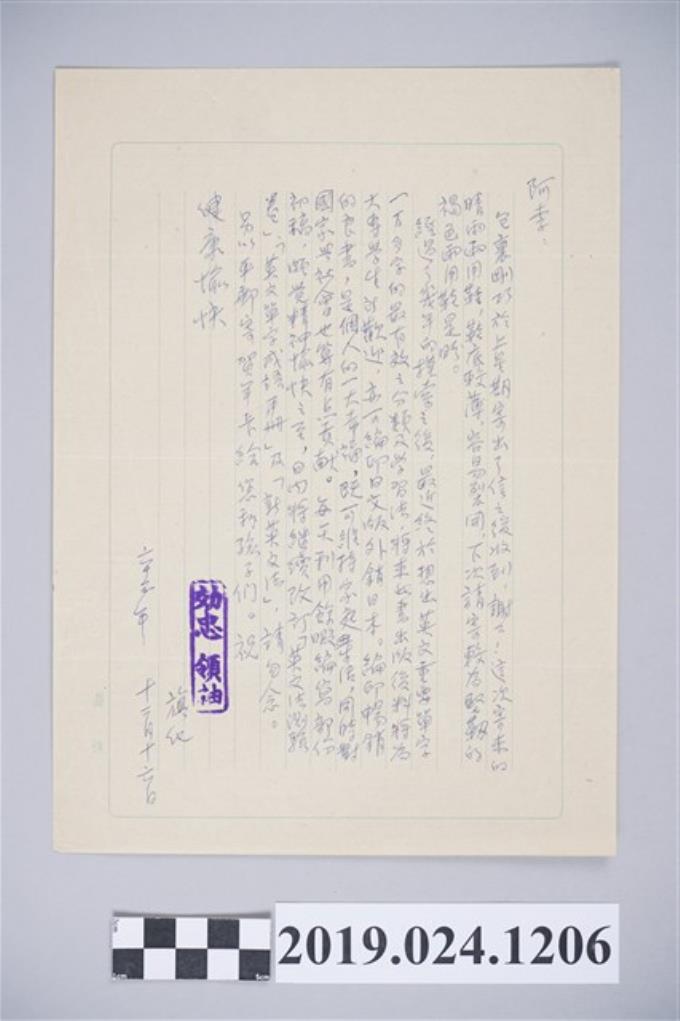 阿李：
包裹剛巧於上星期寄出了信之後收到，謝々！這次寄來的
晴雨両用鞋，鞋底較薄，容易裂開，下次請寄較為堅靱的
褐色両用鞋是盼。
經過了幾年的摸索之後，最近終於想出英文重要單字
一万多字的最有效之分類及學習法，將來此書出版後料將為
大專學生所歡迎，亦可編印日文版外銷日本。編印暢銷
的良書，是個人的一大幸福，既可維持家庭生活，同時對
國家與社會也算有点貢献。每天利用餘暇編寫部份
初稿，頗覚精神愉快之至，日內將継續改訂「英文法測驗
卷」、「英文單字成語手冊」及「新英文法」，請勿念。
另以平郵寄賀年卡給您和孩子们。祝
健康愉快
旗化
六十五年 十二月十六日
効忠領袖
2019.024.1206